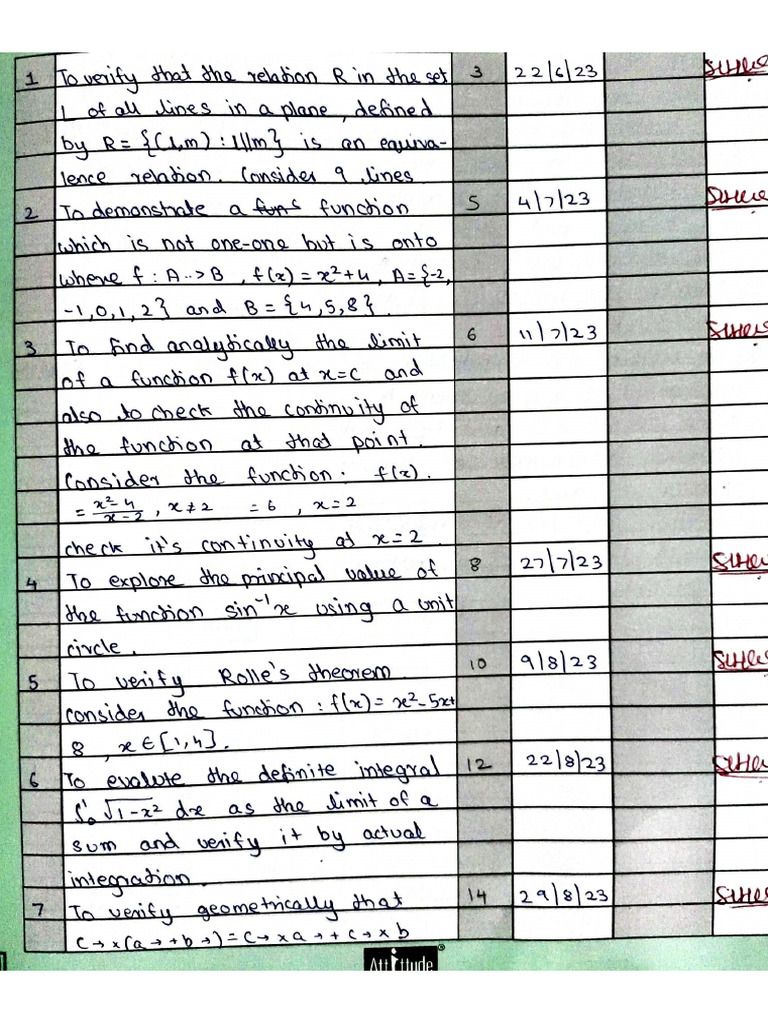 1 To verify that the relation R in the set 3 22/6/23
L of all lines in a plane, defined
by R = {(l,m) : l||m} is an equiva-
lence relation. Consider 9 lines
2 To demonstrate a function 5 4/7/23
which is not one-one but is onto
where f : A --> B , f(x) = x²+4, A={-2,
-1,0,1,2} and B = {4,5,8}.
3 To find analytically the limit 6 11/7/23
of a function f(x) at x=c and
also to check the continuity of
the function at that point.
Consider the function. f(x).
= x²-4/x-2, x≠2 = 6, x=2
check it's continuity at x=2.
4 To explore the principal value of 8 27/7/23
the function sin⁻¹x using a unit
circle.
5 To verify Rolle's theorem 10 9/8/23
consider the function : f(x) = x²-5x+
8 , x ∈ [1,4].
6 To evalute the definite integral 12 22/8/23
∫¹₀ √1-x² dx as the limit of a
sum and verify it by actual
integration.
7 To verify geometrically that 14 29/8/23
c→ x(a→ +b→) = c→ x a→ + c→ x b
Attitude